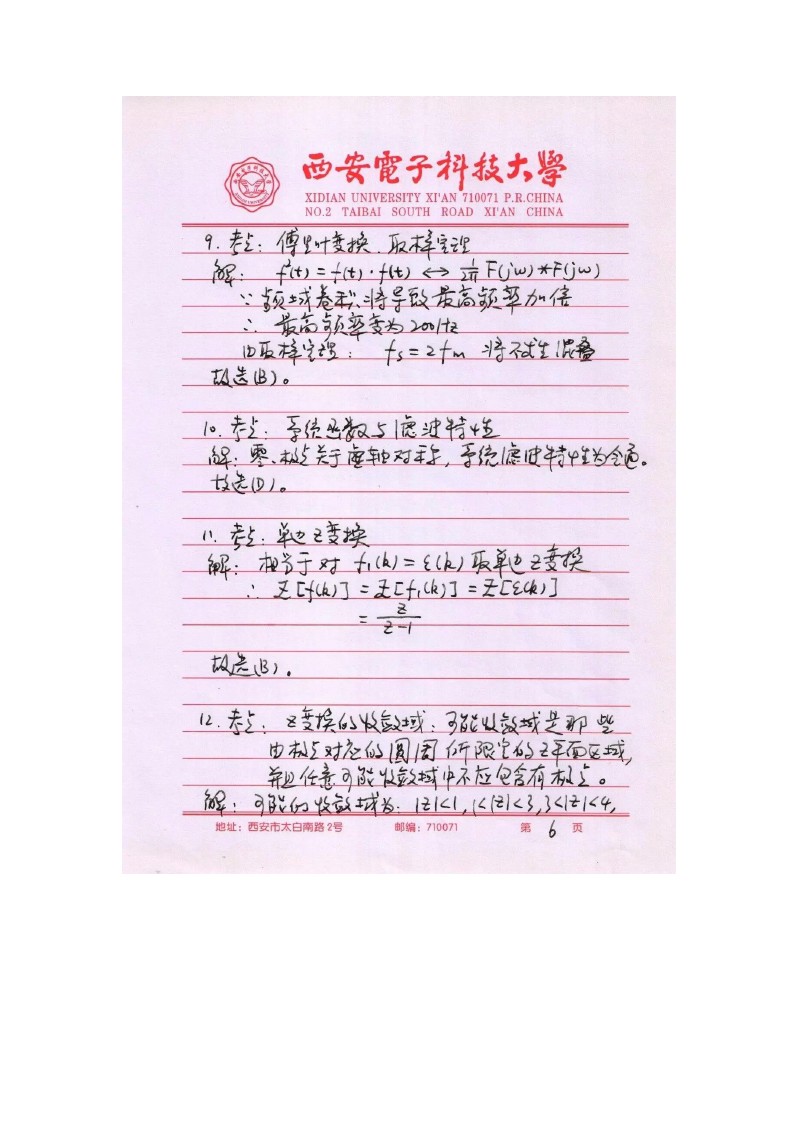 西安電子科技大學
XIDIAN UNIVERSITY XI'AN 710071 P.R.CHINA
NO.2 TAIBAI SOUTH ROAD XI'AN CHINA
9. 考点: 傅里叶变换、取样定理
解: f²(t) = f(t)·f(t) ↔ 1/2π F(jw)*F(jw)
∵ 频域卷积将导致最高频率加倍
∴ 最高频率变为200Hz
由取样定理: fs=2fm 将不发生混叠
故选(B)。
10. 考点: 系统函数与滤波特性
解: 零、极点关于虚轴对称, 系统滤波特性为全通。
故选(D)。
11. 考点: 单边Z变换
解: 相当于对 f₁(k) = ε(k) 取单边Z变换
∴ Z[f(k)] = Z[f₁(k)] = Z[ε(k)]
= z/(z-1)
故选(B)。
12. 考点: Z变换的收敛域: 可能收敛域是那些
由极点对应的圆周所限定的Z平面区域,
并且任意可能收敛域中不应包含有极点。
解: 可能的收敛域为: |z|<1, 1<|z|<3, 3<|z|<4,
地址: 西安市太白南路2号 邮编: 710071 第 6 页